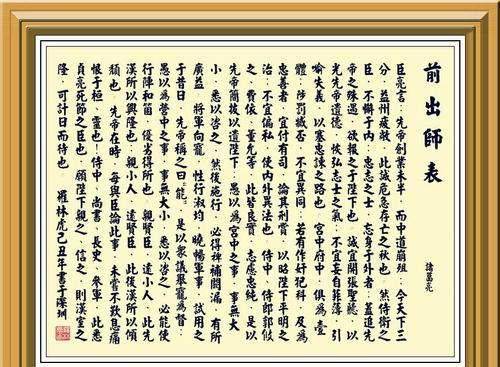 前出師表
諸葛亮
臣亮言：先帝創業未半，而中道崩殂；今天下三
分，益州疲敝，此誠危急存亡之秋也。然侍衛之
臣，不懈于內；忠志之士，忘身于外者：蓋追先
帝之殊遇，欲報之于陛下也。誠宜開張聖聽，以
光先帝遺德，恢弘志士之氣；不宜妄自菲薄，引
喻失義，以塞忠諫之路也。宮中府中，俱為壹
體；陟罰臧否，不宜異同：若有作奸犯科，及為
忠善者，宜付有司，論其刑賞，以昭陛下平明之
治；不宜偏私，使內外異法也。侍中、侍郎郭攸
之、費依、董允等，此皆良實，志慮忠純，是以
先帝簡拔以遺陛下：愚以為宮中之事，事無大
小，悉以咨之，然後施行，必得裨補闕漏，有所
廣益。將軍向寵，性行淑均，曉暢軍事，試用之
于昔日，先帝稱之曰“能”，是以衆議舉寵為督：
愚以為營中之事，事無大小，悉以咨之，必能使
行陣和笛，優劣得所也。親賢臣，遠小人，此先
漢所以興隆也；親小人，遠賢臣，此後漢所以傾
頹也。先帝在時，每與臣論此事，未嘗不歎息痛
恨于桓、靈也！侍中、尚書、長史、參軍，此悉
貞亮死節之臣也，願陛下親之、信之，則漢室之
隆，可計日而待也。 羅林虎己丑年書于深圳